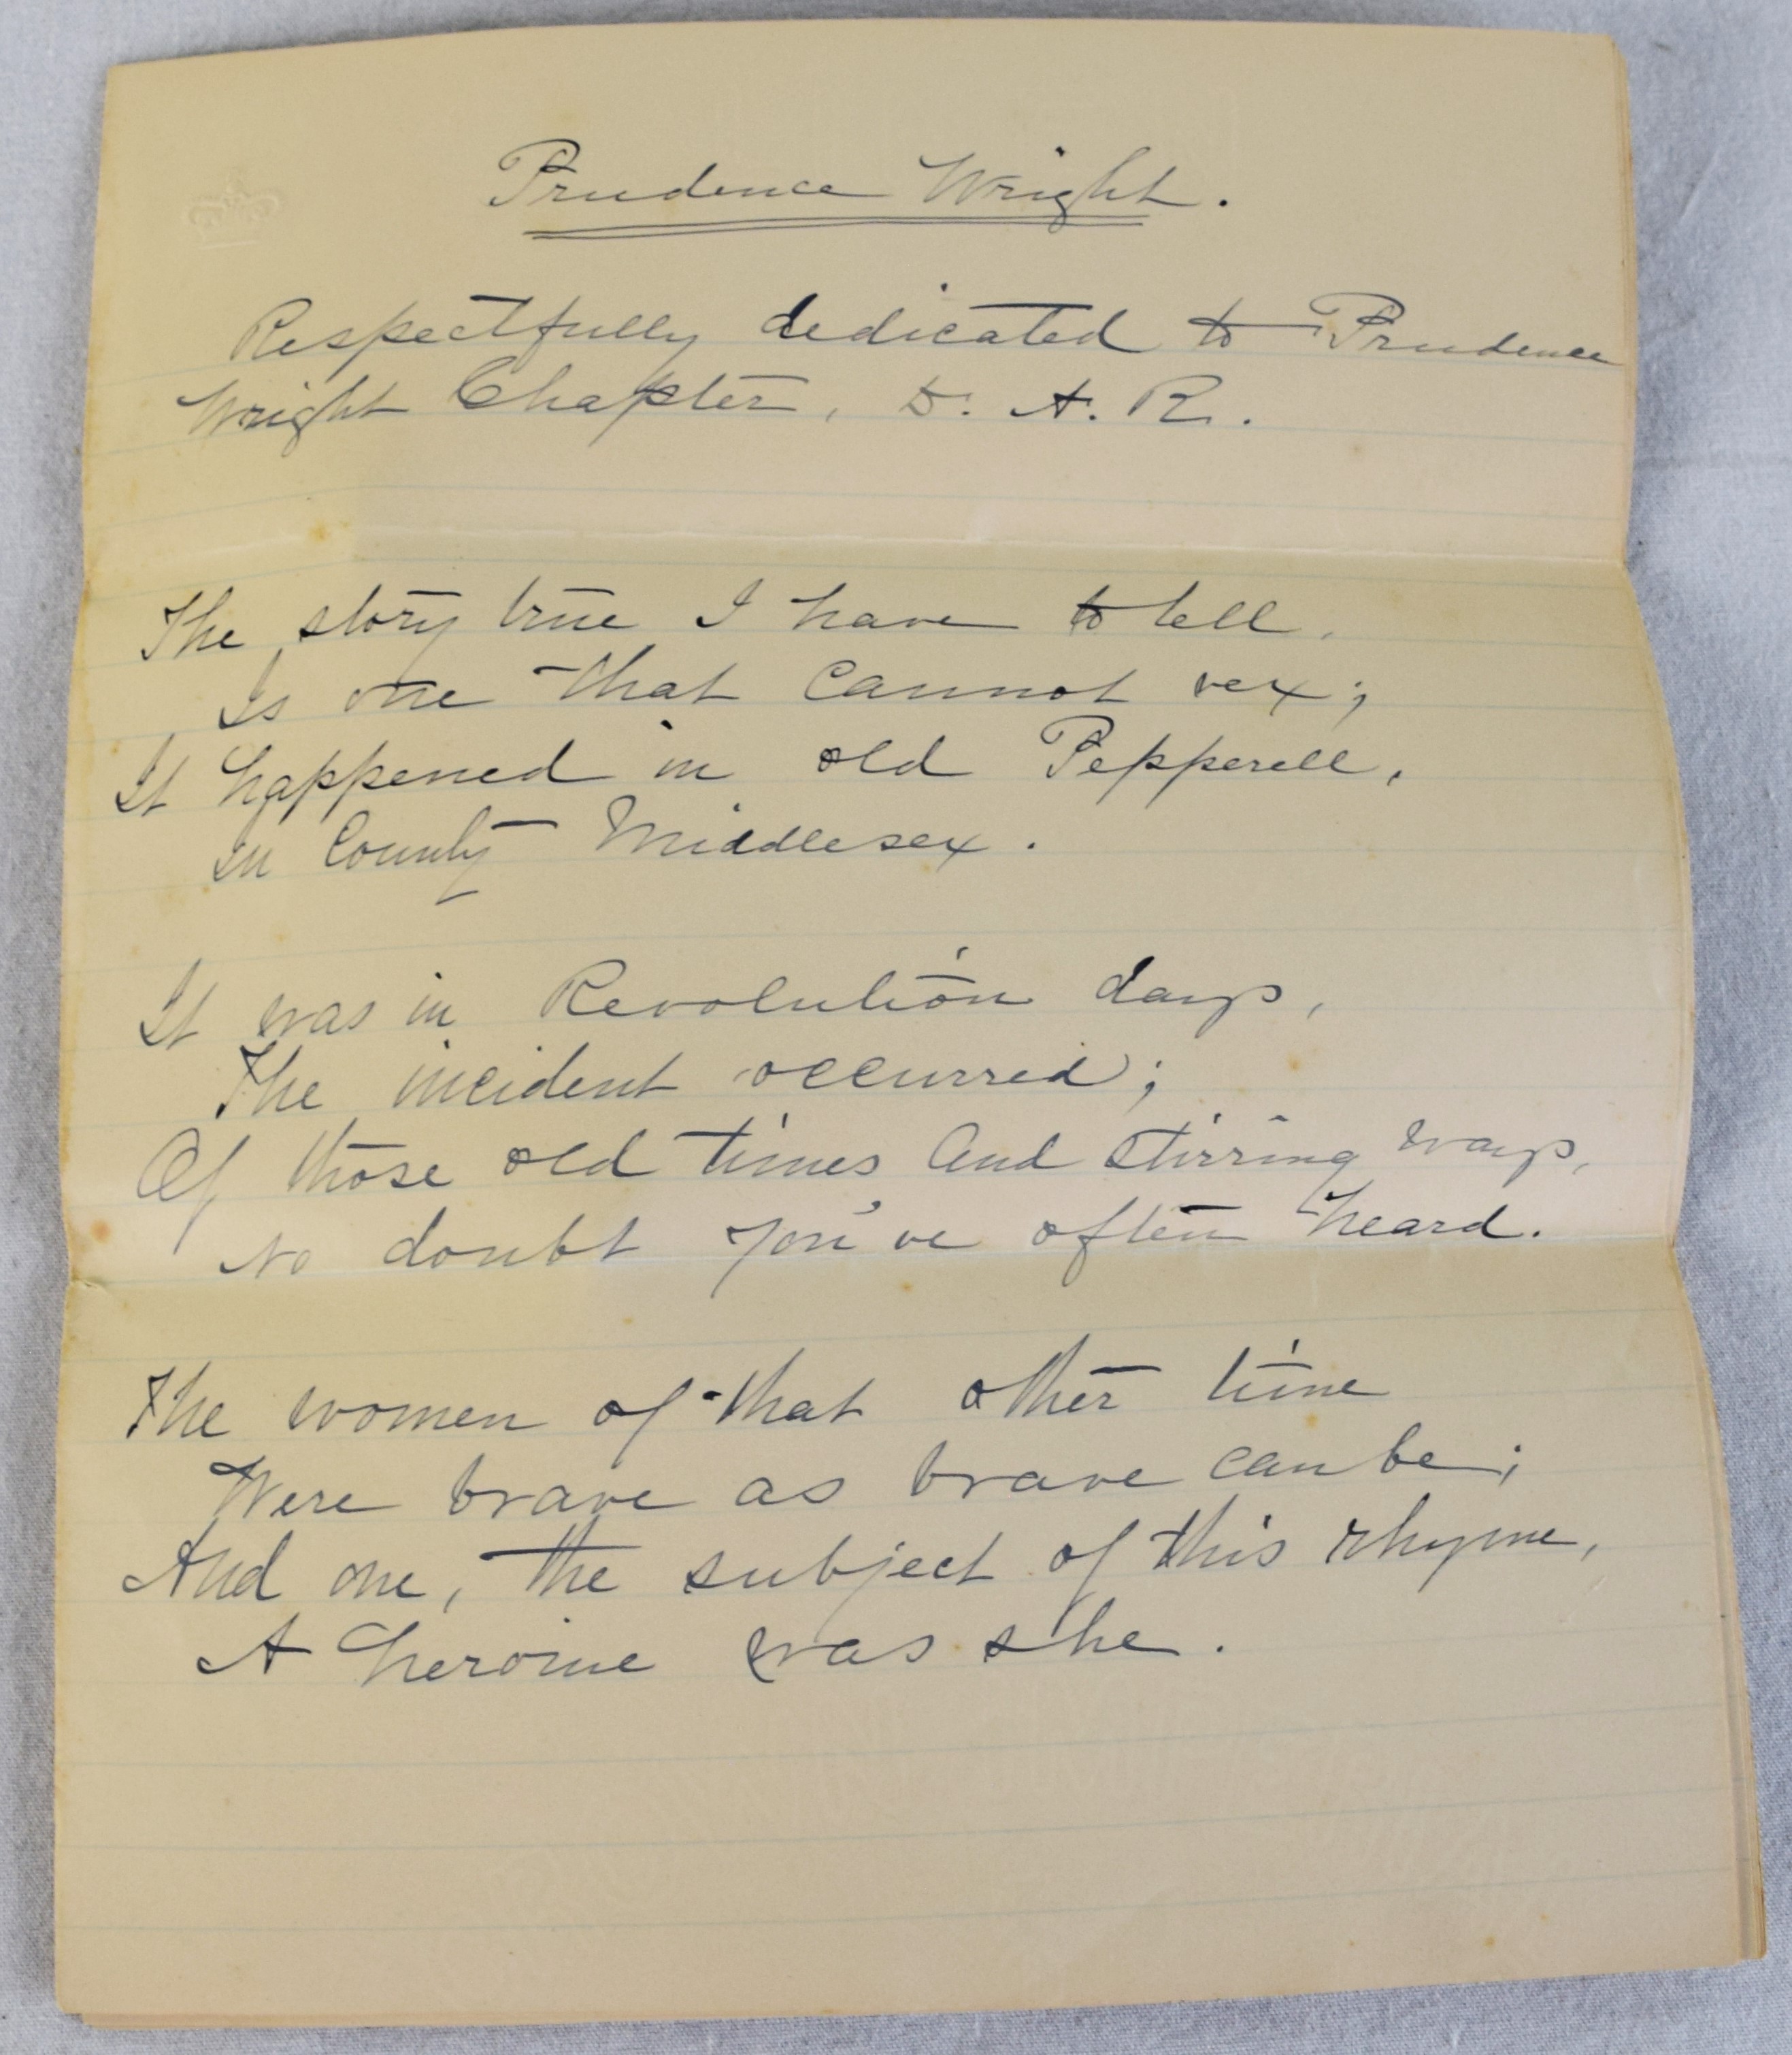 Prudence Wright.
Respectfully dedicated to Prudence
Wright Chapter, D. A. R.
The story true I have to tell,
Is one that cannot vex;
It happened in old Pepperell,
In County Middlesex.
It was in Revolution days,
The incident occurred;
Of those old times and stirring ways,
No doubt you've often heard.
The women of that other time
Were brave as brave can be;
And one, the subject of this rhyme,
A heroine was she.